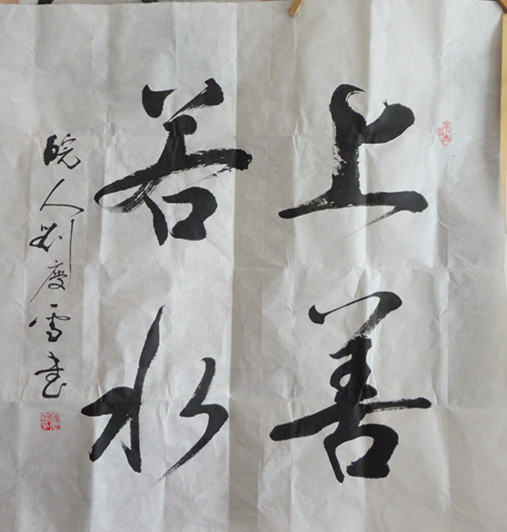 上善
若水
皖人刘度雪书